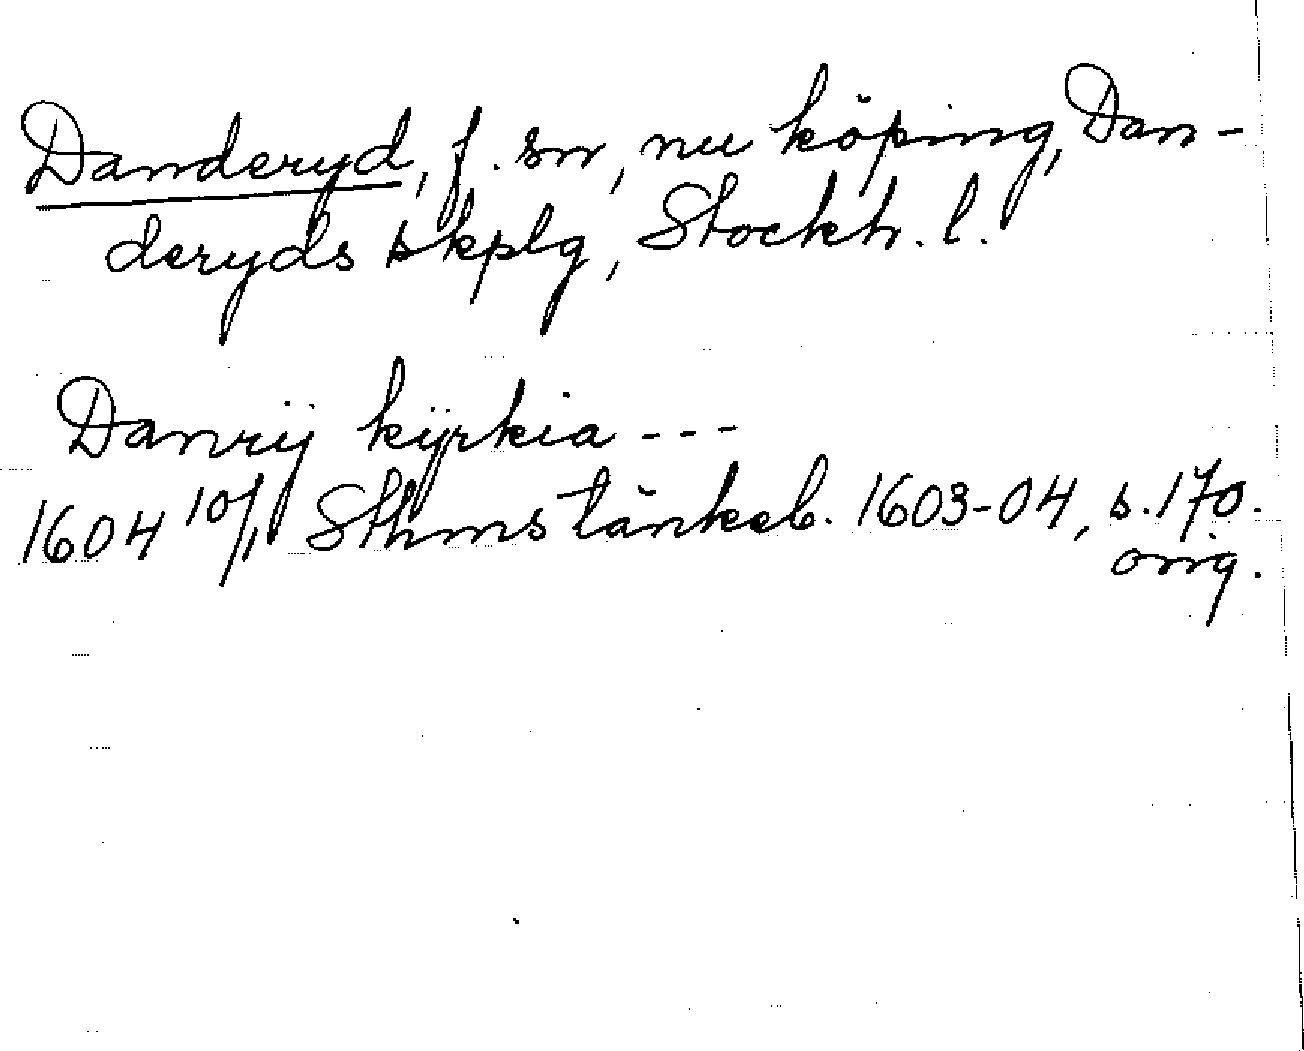 Danderyd, f. sn, nu köping, Dan-
deryds skplg, Stockh. l.
Danrÿ kÿrkia ---
1604 10/1 Sthms tänkeb. 1603-04, s. 170.
orig.